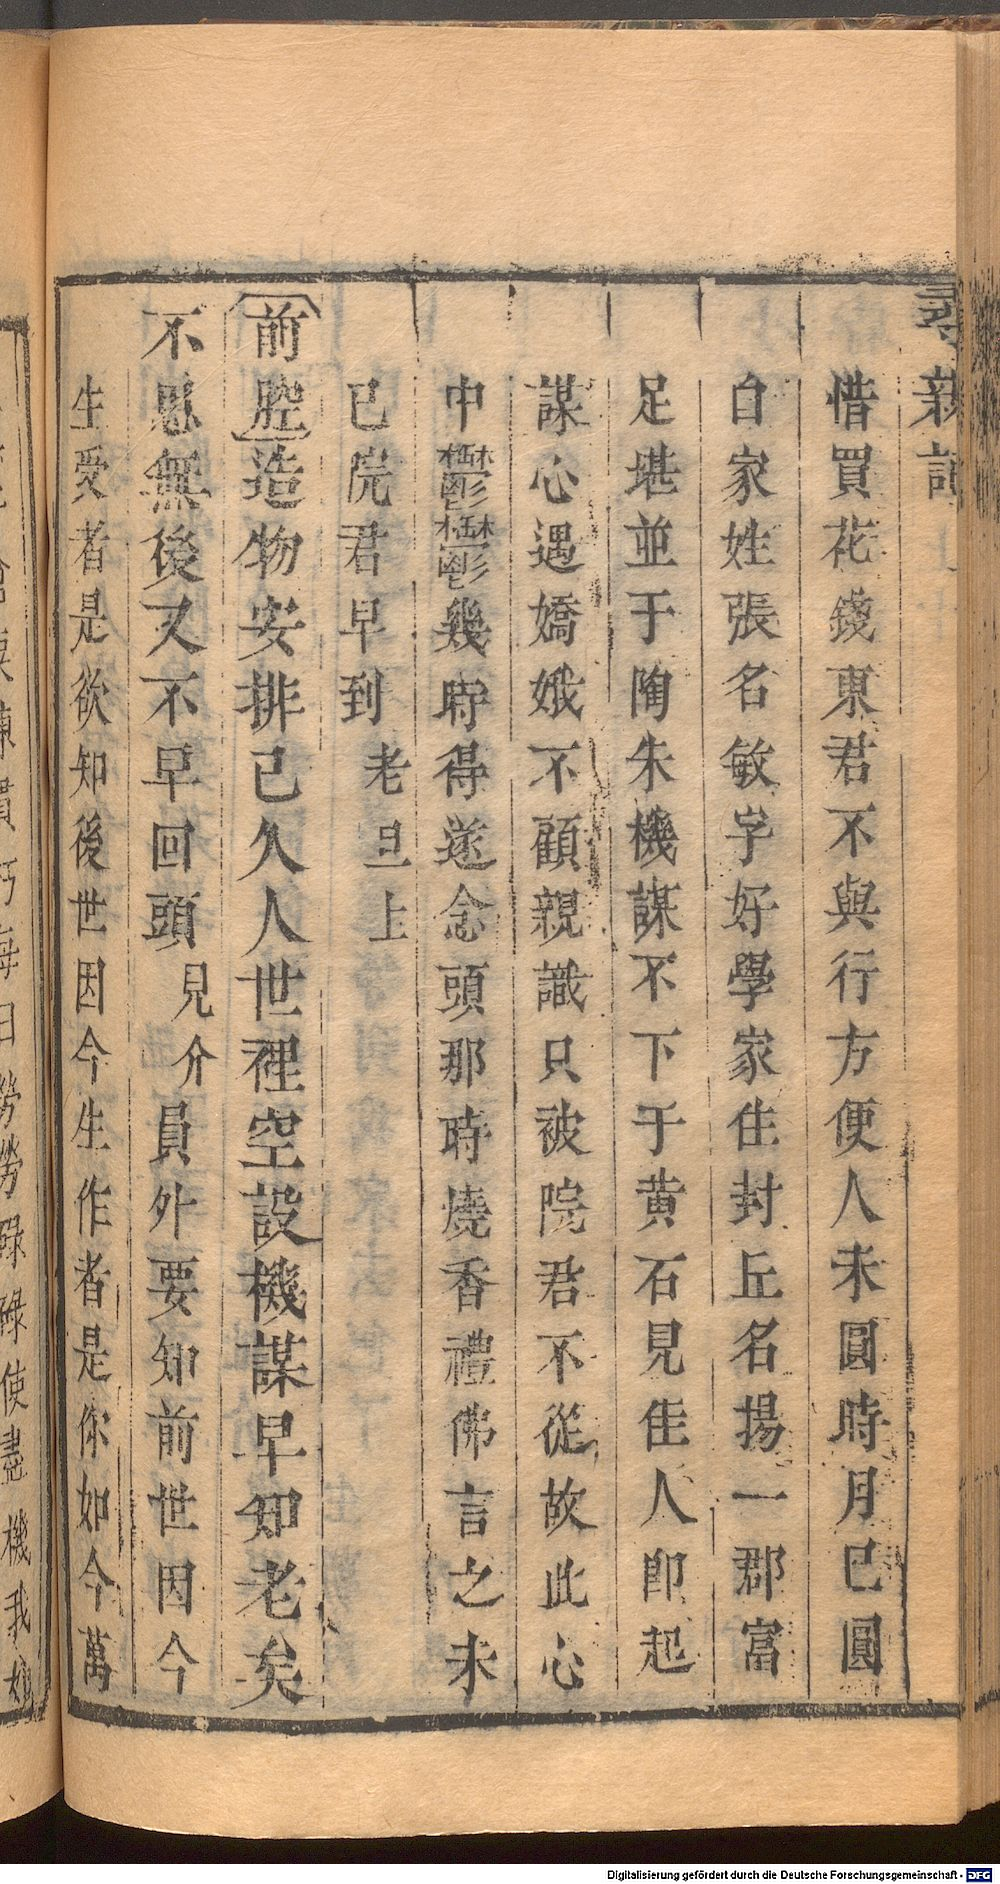 尋親記
惜買花錢東君不與行方便人未圓時月已圓
白家姓張名敏字好學家住封丘名揚一郡富
足堪並于陶朱機謀不下于黃石見佳人卽起
謀心遇嬌娥不顧親識只被院君不從故此心
中鬱鬱幾時得遂念頭那時燒香禮佛言之未
已院君早到 老旦上
前腔造物安排已久人世裡空設機謀早知老矣
不愿無後又不早回頭 見介 員外要知前世因今
生受者是欲知後世因今生作者是你如今萬
每日勞勞碌碌使盡機我
Digitalisierung gefördert durch die Deutsche Forschungsgemeinschaft - DFG